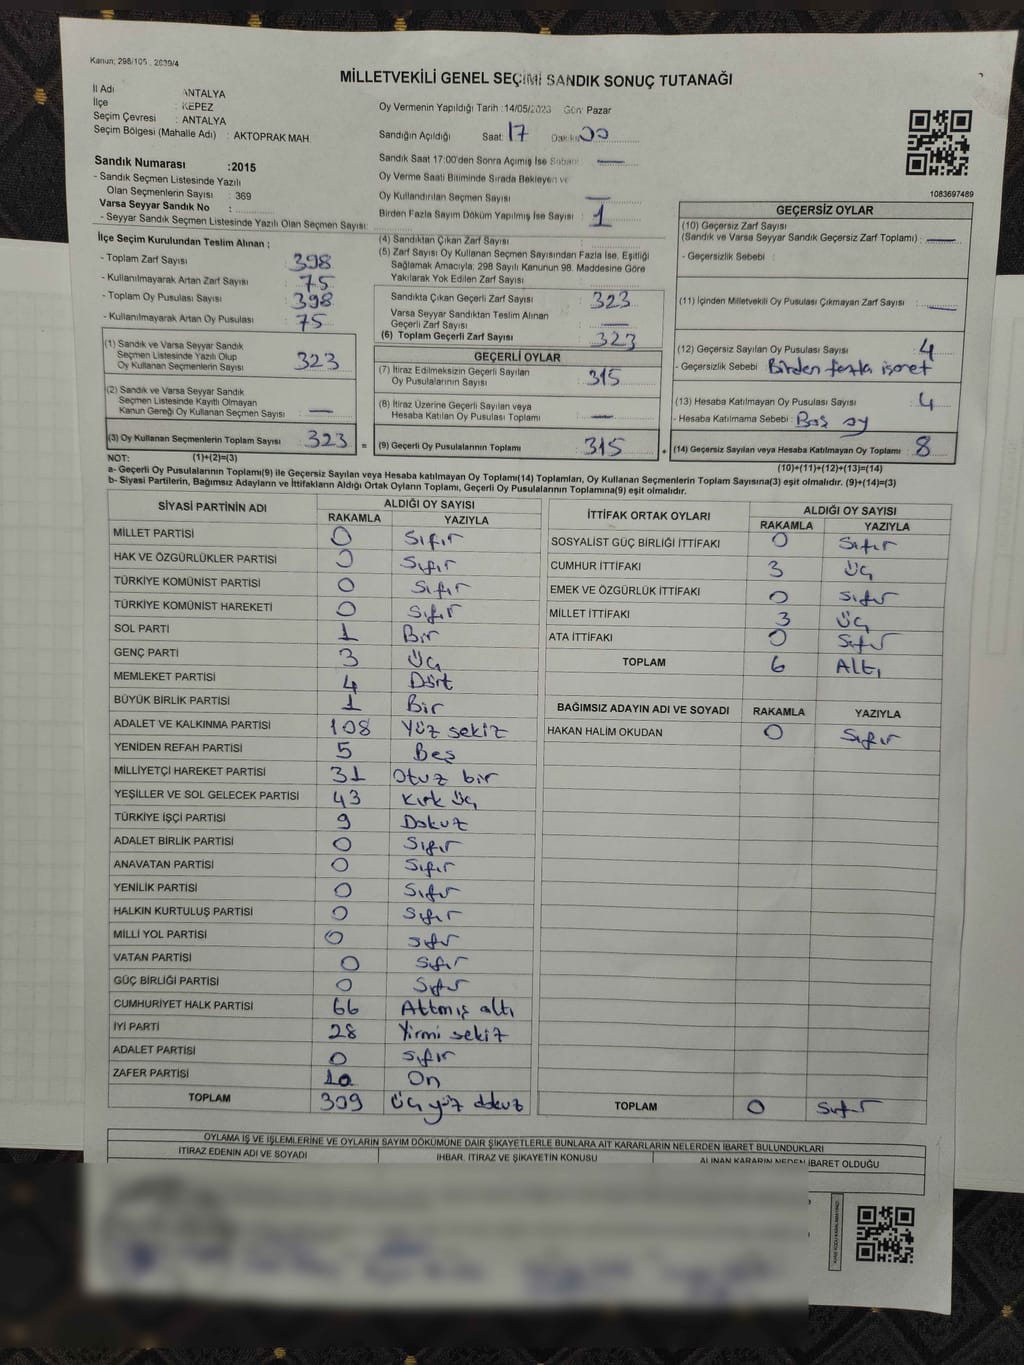 Kanun; 298/105 , 2839/4
MİLLETVEKİLİ GENEL SEÇİMİ SANDIK SONUÇ TUTANAĞI
İl Adı : ANTALYA
İlçe : KEPEZ
Seçim Çevresi : ANTALYA
Seçim Bölgesi (Mahalle Adı) : AKTOPRAK MAH.
Oy Vermenin Yapıldığı Tarih :14/05/2023 Gün: Pazar
Sandığın Açıldığı Saat: 17 Dakika 00
Sandık Saat 17:00'den Sonra Açılmış İse Sebebi —
Oy Verme Saati Bitiminde Sırada Bekleyen ve
Oy Kullandırılan Seçmen Sayısı —
Birden Fazla Sayım Döküm Yapılmış İse Sayısı : 1
1083697489
Sandık Numarası :2015
- Sandık Seçmen Listesinde Yazılı
Olan Seçmenlerin Sayısı : 369
Varsa Seyyar Sandık No :
- Seyyar Sandık Seçmen Listesinde Yazılı Olan Seçmen Sayısı:
İlçe Seçim Kurulundan Teslim Alınan ;
- Toplam Zarf Sayısı : 398
- Kullanılmayarak Artan Zarf Sayısı : 75
- Toplam Oy Pusulası Sayısı : 398
- Kullanılmayarak Artan Oy Pusulası : 75
(1) Sandık ve Varsa Seyyar Sandık
Seçmen Listesinde Yazılı Olup
Oy Kullanan Seçmenlerin Sayısı : 323
(2) Sandık ve Varsa Seyyar Sandık
Seçmen Listesinde Kayıtlı Olmayan
Kanun Gereği Oy Kullanan Seçmen Sayısı : —
(3) Oy Kullanan Seçmenlerin Toplam Sayısı : 323 =
(4) Sandıktan Çıkan Zarf Sayısı :
(5) Zarf Sayısı Oy Kullanan Seçmen Sayısından Fazla İse, Eşitliği
Sağlamak Amacıyla, 298 Sayılı Kanunun 98. Maddesine Göre
Yakılarak Yok Edilen Zarf Sayısı :
Sandıkta Çıkan Geçerli Zarf Sayısı : 323
Varsa Seyyar Sandıktan Teslim Alınan
Geçerli Zarf Sayısı : —
(6) Toplam Geçerli Zarf Sayısı : 323
GEÇERLİ OYLAR
(7) İtiraz Edilmeksizin Geçerli Sayılan
Oy Pusulalarının Sayısı : 315
(8) İtiraz Üzerine Geçerli Sayılan veya
Hesaba Katılan Oy Pusulası Toplamı : —
(9) Geçerli Oy Pusulalarının Toplamı : 315 +
GEÇERSİZ OYLAR
(10) Geçersiz Zarf Sayısı
(Sandık ve Varsa Seyyar Sandık Geçersiz Zarf Toplamı) : —
- Geçersizlik Sebebi :
(11) İçinden Milletvekili Oy Pusulası Çıkmayan Zarf Sayısı : —
(12) Geçersiz Sayılan Oy Pusulası Sayısı : 4
- Geçersizlik Sebebi : Birden fazla işaret
(13) Hesaba Katılmayan Oy Pusulası Sayısı : 4
- Hesaba Katılmama Sebebi : Boş oy
(14) Geçersiz Sayılan veya Hesaba Katılmayan Oy Toplamı : 8
NOT: (1)+(2)=(3)
(10)+(11)+(12)+(13)=(14)
a- Geçerli Oy Pusulalarının Toplamı(9) ile Geçersiz Sayılan veya Hesaba katılmayan Oy Toplamı(14) Toplamları, Oy Kullanan Seçmenlerin Toplam Sayısına(3) eşit olmalıdır. (9)+(14)=(3)
b- Siyasi Partilerin, Bağımsız Adayların ve İttifakların Aldığı Ortak Oyların Toplamı, Geçerli Oy Pusulalarının Toplamına(9) eşit olmalıdır.
SİYASİ PARTİNİN ADI ALDIĞI OY SAYISI
RAKAMLA YAZIYLA
MİLLET PARTİSİ 0 Sıfır
HAK VE ÖZGÜRLÜKLER PARTİSİ 0 Sıfır
TÜRKİYE KOMÜNİST PARTİSİ 0 Sıfır
TÜRKİYE KOMÜNİST HAREKETİ 0 Sıfır
SOL PARTİ 1 Bir
GENÇ PARTİ 3 Üç
MEMLEKET PARTİSİ 4 Dört
BÜYÜK BİRLİK PARTİSİ 1 Bir
ADALET VE KALKINMA PARTİSİ 108 Yüz sekiz
YENİDEN REFAH PARTİSİ 5 Beş
MİLLİYETÇİ HAREKET PARTİSİ 31 Otuz bir
YEŞİLLER VE SOL GELECEK PARTİSİ 43 Kırk üç
TÜRKİYE İŞÇİ PARTİSİ 9 Dokuz
ADALET BİRLİK PARTİSİ 0 Sıfır
ANAVATAN PARTİSİ 0 Sıfır
YENİLİK PARTİSİ 0 Sıfır
HALKIN KURTULUŞ PARTİSİ 0 Sıfır
MİLLİ YOL PARTİSİ 0 sıfır
VATAN PARTİSİ 0 Sıfır
GÜÇ BİRLİĞİ PARTİSİ 0 Sıfır
CUMHURİYET HALK PARTİSİ 66 Altmış altı
İYİ PARTİ 28 Yirmi sekiz
ADALET PARTİSİ 0 Sıfır
ZAFER PARTİSİ 10 On
TOPLAM 309 Üç yüz dokuz
İTTİFAK ORTAK OYLARI ALDIĞI OY SAYISI
RAKAMLA YAZIYLA
SOSYALİST GÜÇ BİRLİĞİ İTTİFAKI 0 Sıfır
CUMHUR İTTİFAKI 3 Üç
EMEK VE ÖZGÜRLÜK İTTİFAKI 0 Sıfır
MİLLET İTTİFAKI 3 Üç
ATA İTTİFAKI 0 Sıfır
TOPLAM 6 Altı
BAĞIMSIZ ADAYIN ADI VE SOYADI RAKAMLA YAZIYLA
HAKAN HALİM OKUDAN 0 Sıfır
TOPLAM 0 Sıfır
OYLAMA İŞ VE İŞLEMLERİNE VE OYLARIN SAYIM DÖKÜMÜNE DAİR ŞİKAYETLERLE BUNLARA AİT KARARLARIN NELERDEN İBARET BULUNDUKLARI
İTİRAZ EDENİN ADI VE SOYADI İHBAR, İTİRAZ VE ŞİKAYETİN KONUSU ALINAN KARARIN NEDEN İBARET OLDUĞU